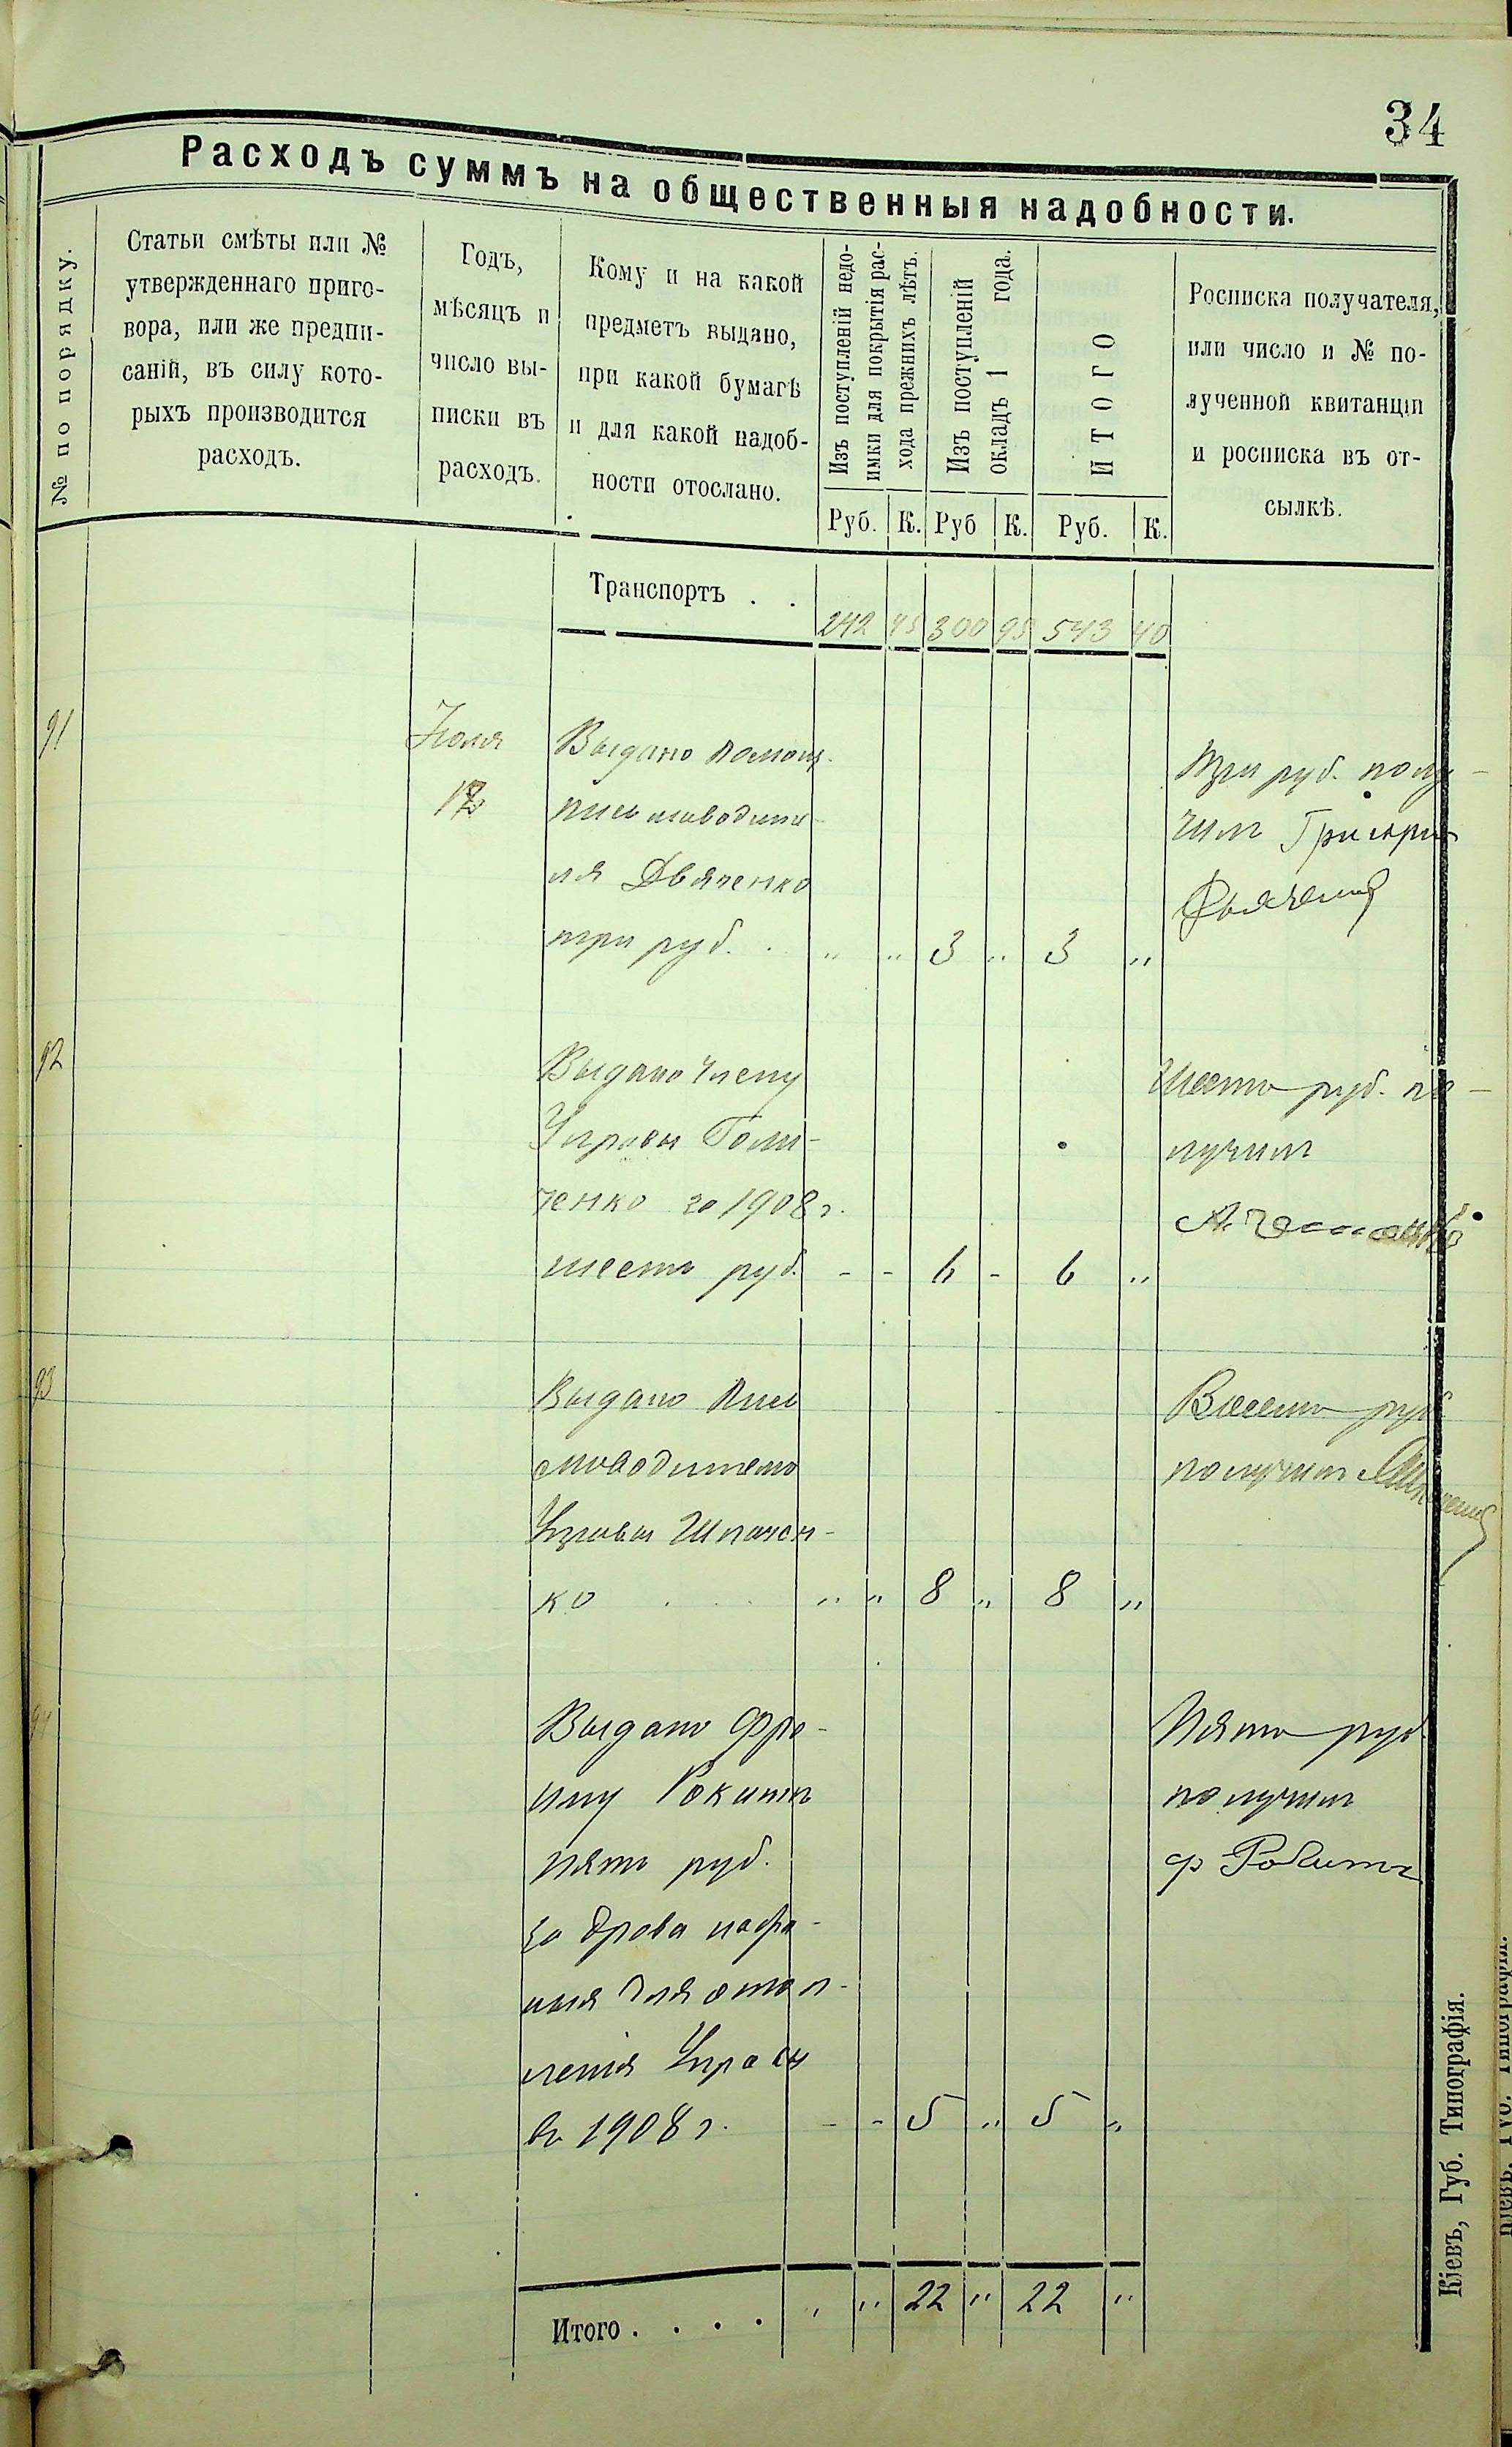 34
Расходъ суммъ на общественныя надобности.
№ по порядку.
Статьи смѣты или №
утвержденнаго приго-
вора, или же предпи-
саній, въ силу кото-
рыхъ производится
расходъ.
Годъ,
мѣсяцъ и
число вы-
писки въ
расходъ.
Кому и на какой
предметъ выдано,
при какой бумагѣ
и для какой надоб-
ности отослано.
Изъ поступленій недо-
имки для покрытія рас-
хода прежнихъ лѣтъ.
Изъ поступленій
окладъ 1 года.
ИТОГО
Росписка получателя,
или число и № по-
лученной квитанціи
и росписка въ от-
сылкѣ.
Руб. К. Руб К. Руб. К.
Транспортъ . . 242 45 300 95 543 40
91
Выдано помощ.
письмоводите
ля Дьяченко
три руб. . " " 3 " 3 "
Три руб. полу-
чил Григорий
92
Выдано члену
Управы
ченко за 1908 г.
шесть руб. - - 6 - 6 "
Шесть руб. по-
лучил
93
Выдано Пись
моводителю
Управы Шпачен-
ко . . . " " 8 " 8 "
Восемь руб
получил
94
Выдано Ефре-
иму Рокитъ
пять руб.
за дрова
для отоп-
ленія Управы
въ 1908 г. - - 5 " 5 "
Пять руб.
получил
Итого . . . . " " 22 " 22 "
Кіевъ, Губ. Типографія.